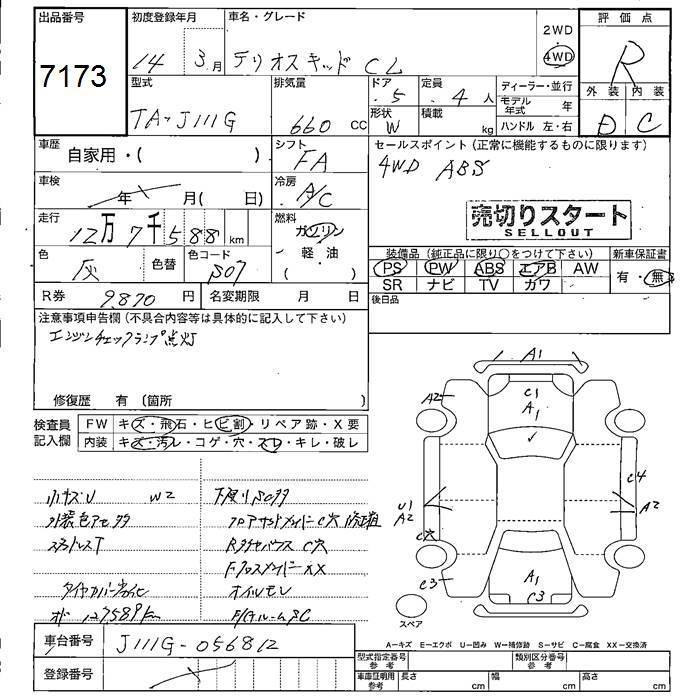 出品番号
7173
初度登録年月
14 3月
車名・グレード
テリオスキッド CL
2WD
4WD
評価点
R
外装 内装
D C
型式
TA-J111G
排気量
660 cc
ドア
5
定員
4 人
形状
W
積載
kg
ディーラー・並行
モデル年式 年
ハンドル 左・右
車歴
自家用・( )
シフト
FA
セールスポイント(正常に機能するものに限ります)
4WD ABS
車検
年 月( 日)
冷房
A/C
売切りスタート
SELLOUT
走行
12万7千588km
燃料
ガソリン
・
軽・油
( )
色
灰
色替
色コード
S07
装備品(純正品に限り○をつけて下さい)
PS PW ABS エアB AW
SR ナビ TV カワ
新車保証書
有・無
R券 9870円
名変期限 月 日
後日品
注意事項申告欄(不具合内容等は具体的に記入して下さい)
エンジンチェックランプ点灯
修復歴 有(箇所 )
検査員記入欄
FW キズ・飛石・ヒビ割・リペア跡・X要
内装 キズ・汚レ・コゲ・穴・スレ・キレ・破レ
小キズ・U W2
下廻りS
外装色アセ
C穴 修正有
ステアレスT
C穴
XX
オイルモレ
オド 127589km
A1
C1
A1
A2
A2
C4
U1
A2
C穴
C3
A1
C3
C3
スペア
車台番号
J111G-056812
登録番号
A=キズ E=エクボ U=凹み W=補修跡 S=サビ C=腐食 XX=交換済
型式指定番号 参考
類別区分番号 参考
車庫証明用 参考
長さ cm
幅 cm
高さ cm